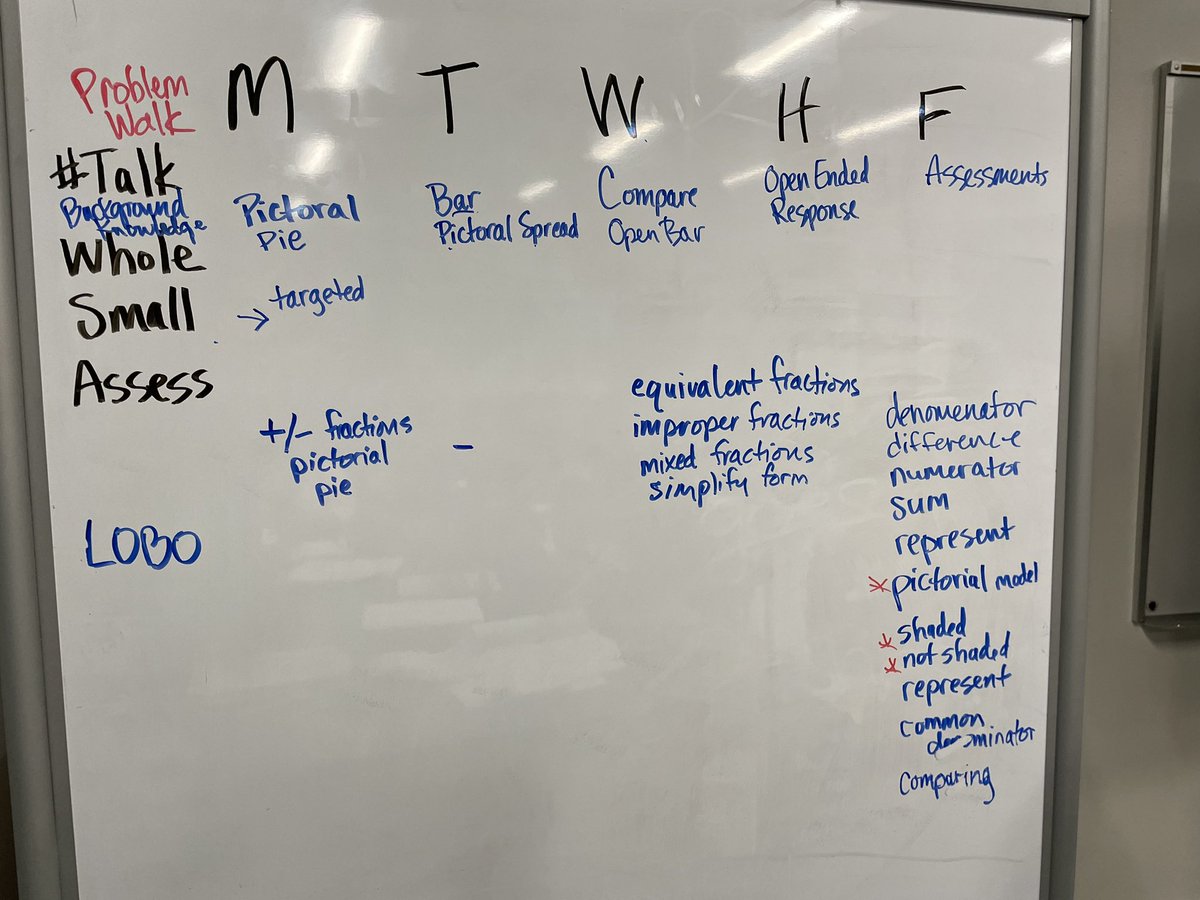 Problem
Walk
M T W H F
#Talk
Background
Knowledge
Whole
Small
Assess
LOBO
Pictoral
Pie
→ targeted
+/- fractions
pictorial
pie
Bar
Pictoral Spread
-
Compare
Open Bar
equivalent fractions
improper fractions
mixed fractions
simplify form
Open Ended
Response
Assessments
denomenator
difference
numerator
sum
represent
* pictorial model
* shaded
* not shaded
represent
common
denominator
comparing